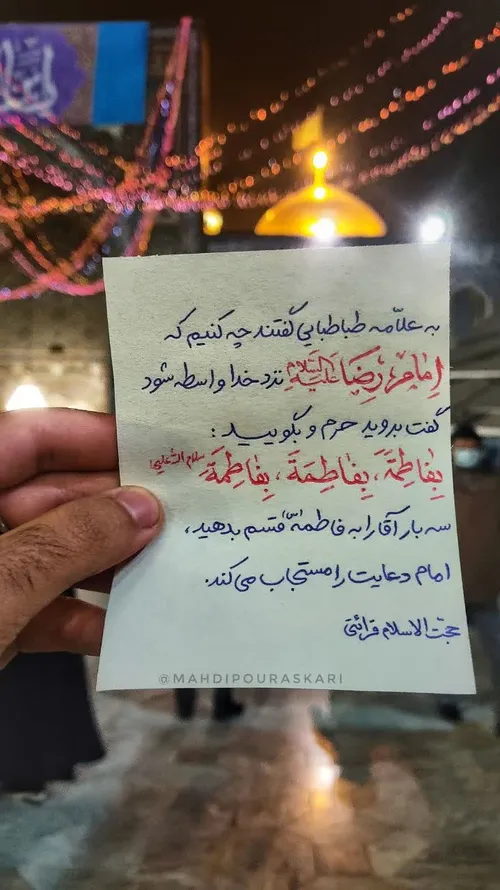 به علّامه طباطبایی گفتند چه کنیم که
اِمٰام رِضٰا عَلَیهِ السَّلام نزد خدا واسطه شود
گفت بروید حرم و بگویید :
بِفٰاطِمَةَ، بِفٰاطِمَةَ، بِفٰاطِمَةَ سلام الله علیها
سه بار آقا را به فاطمهٔ قسم بدهید،
امام دعایت را مستجاب می‌کند.
حجّت الاسلام قرائتی
@MAHDIPOURASKARI